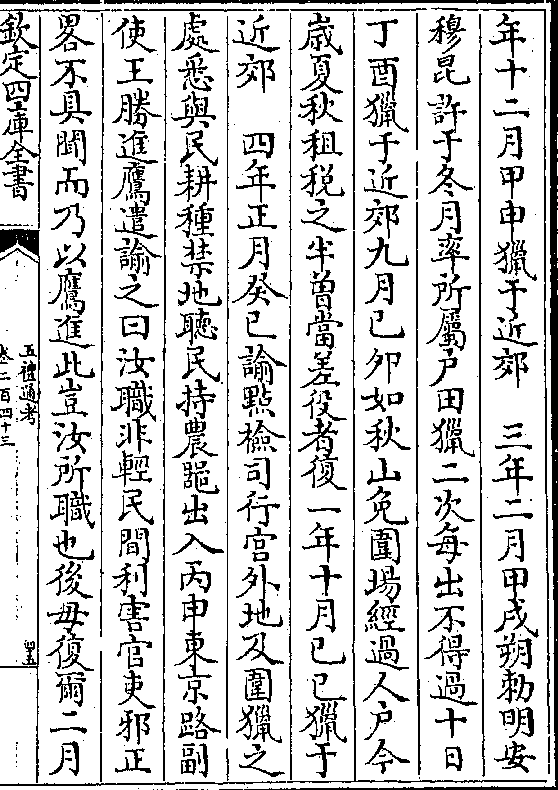 年十二月甲申獵于近郊　三年二月甲戌朔勅明安
穆昆許于冬月率所屬户田獵二次每出不得過十日
丁酉獵于近郊九月己卯如秋山免圍塲經過人户今
歳夏秋租税之半曽當差役者復一年十月己巳獵于
近郊　四年正月癸巳諭㸃檢司行宫外地及圍獵之
處悉與民耕種禁地聽民持農噐出入丙申東京路副
使王勝進鷹遣諭之曰汝職非輕民間利害官吏邪正
畧不具聞而乃以鷹進此豈汝所職也後毋復爾二月
欽定四庫全書
五禮通考
卷二百四十三